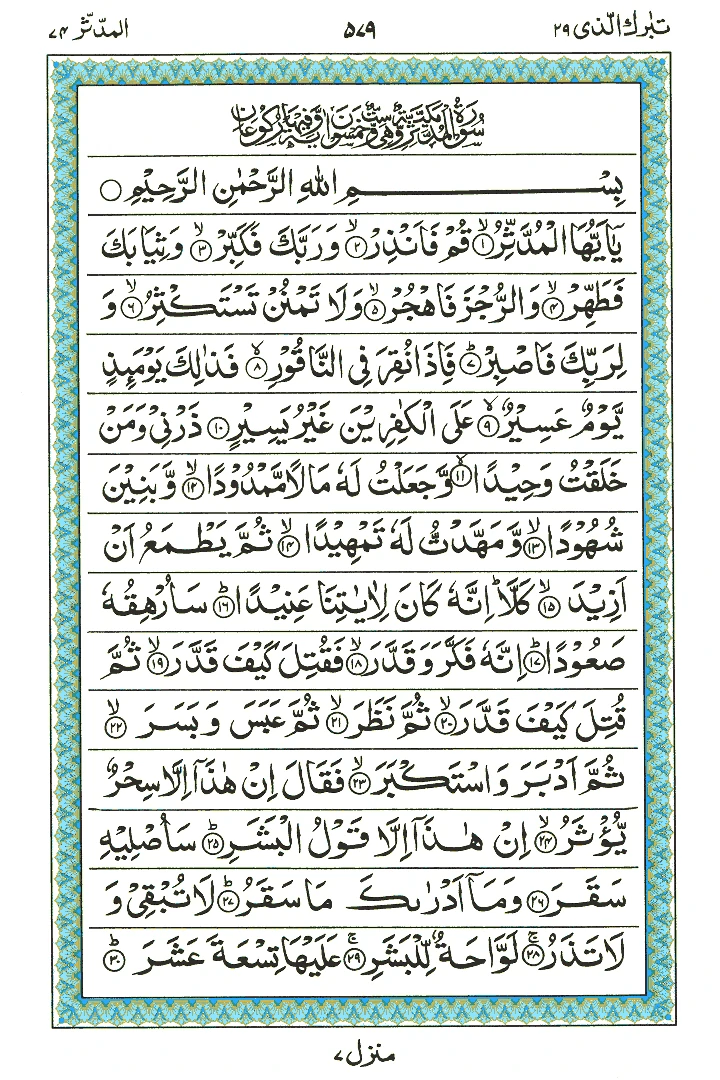 تبٰرك الّذی ۲۹
۵۷۹
المدّثّر ۷۴
سُوْرَةُ الْمُدَّثِّرِ مَكِّيَّةٌ وَّهِيَ سِتٌّ وَّخَمْسُوْنَ اٰيَةً وَّفِيْهَا رُكُوْعَانِ
بِسْمِ اللهِ الرَّحْمٰنِ الرَّحِيْمِ ○
يٰۤاَيُّهَا الْمُدَّثِّرُۙ ۱ قُمْ فَاَنْذِرْۙ ۲ وَرَبَّكَ فَكَبِّرْۙ ۳ وَثِيَابَكَ
فَطَهِّرْۙ ۴ وَالرُّجْزَ فَاهْجُرْۙ ۵ وَلَا تَمْنُنْ تَسْتَكْثِرُۙ ۶ وَ
لِرَبِّكَ فَاصْبِرْؕ ۷ فَاِذَا نُقِرَ فِى النَّاقُوْرِۙ ۸ فَذٰلِكَ يَوْمَىِٕذٍ
يَّوْمٌ عَسِيْرٌۙ ۹ عَلَى الْكٰفِرِيْنَ غَيْرُ يَسِيْرٍ ۱۰ ذَرْنِىْ وَمَنْ
خَلَقْتُ وَحِيْدًاۙ ۱۱ وَّجَعَلْتُ لَهٗ مَالًا مَّمْدُوْدًاۙ ۱۲ وَّبَنِيْنَ
شُهُوْدًاۙ ۱۳ وَّمَهَّدْتُّ لَهٗ تَمْهِيْدًاۙ ۱۴ ثُمَّ يَطْمَعُ اَنْ
اَزِيْدَۙ ۱۵ كَلَّاؕ اِنَّهٗ كَانَ لِاٰيٰتِنَا عَنِيْدًاؕ ۱۶ سَاُرْهِقُهٗ
صَعُوْدًاؕ ۱۷ اِنَّهٗ فَكَّرَ وَقَدَّرَۙ ۱۸ فَقُتِلَ كَيْفَ قَدَّرَۙ ۱۹ ثُمَّ
قُتِلَ كَيْفَ قَدَّرَۙ ۲۰ ثُمَّ نَظَرَۙ ۲۱ ثُمَّ عَبَسَ وَبَسَرَۙ ۲۲
ثُمَّ اَدْبَرَ وَاسْتَكْبَرَۙ ۲۳ فَقَالَ اِنْ هٰذَاۤ اِلَّا سِحْرٌ
يُّؤْثَرُۙ ۲۴ اِنْ هٰذَاۤ اِلَّا قَوْلُ الْبَشَرِؕ ۲۵ سَاُصْلِيْهِ
سَقَرَ ۲۶ وَمَاۤ اَدْرٰىكَ مَا سَقَرُؕ ۲۷ لَا تُبْقِىْ وَ
لَا تَذَرُۚ ۲۸ لَوَّاحَةٌ لِّلْبَشَرِۚ ۲۹ عَلَيْهَا تِسْعَةَ عَشَرَؕ ۳۰
منزل ۷